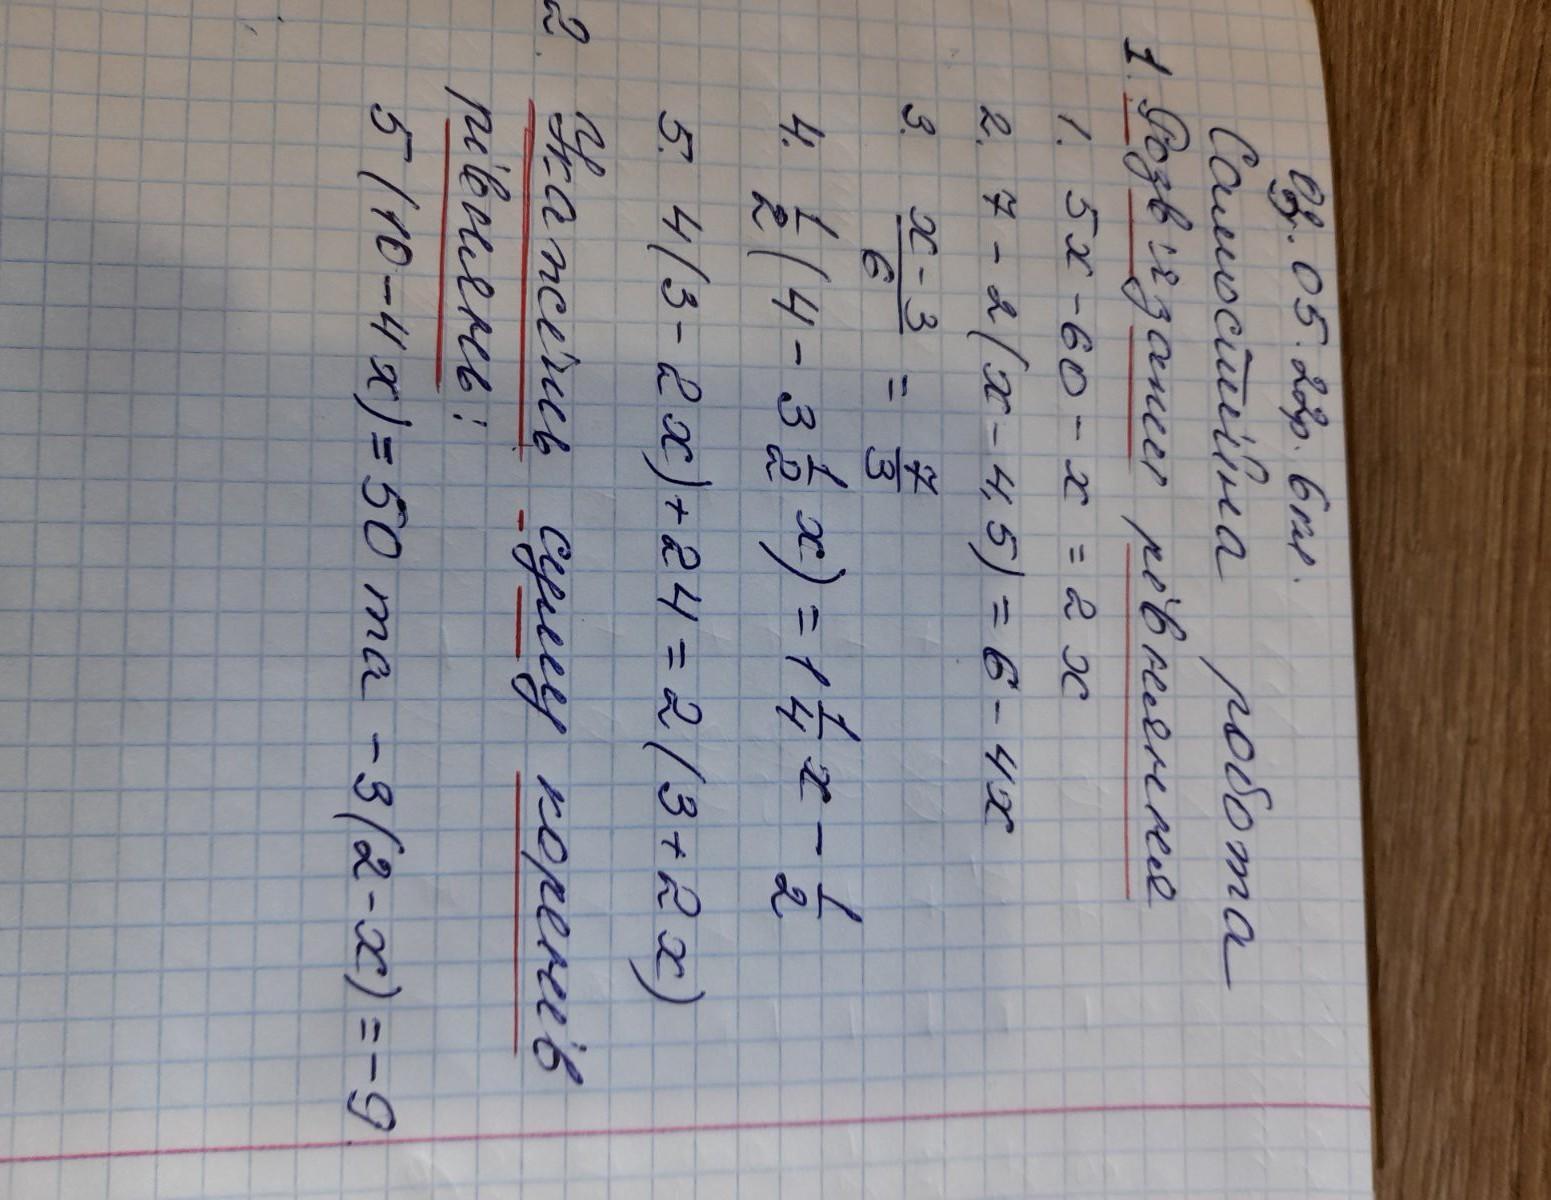 09.05.22р. 6кл.
Самостійна робота
1. Розв'язання рівняння
1. 5x - 60 - x = 2x
2. 7 - 2(x - 4,5) = 6 - 4x
3. x - 3/6 = 7/3
4. 1/2(4 - 3 1/2 x) = 1 1/4 x - 1/2
5. 4(3 - 2x) + 24 = 2(3 + 2x)
2. Укажіть суму коренів
рівнянь:
5(10 - 4x) = 50 та -3(2 - x) = -9